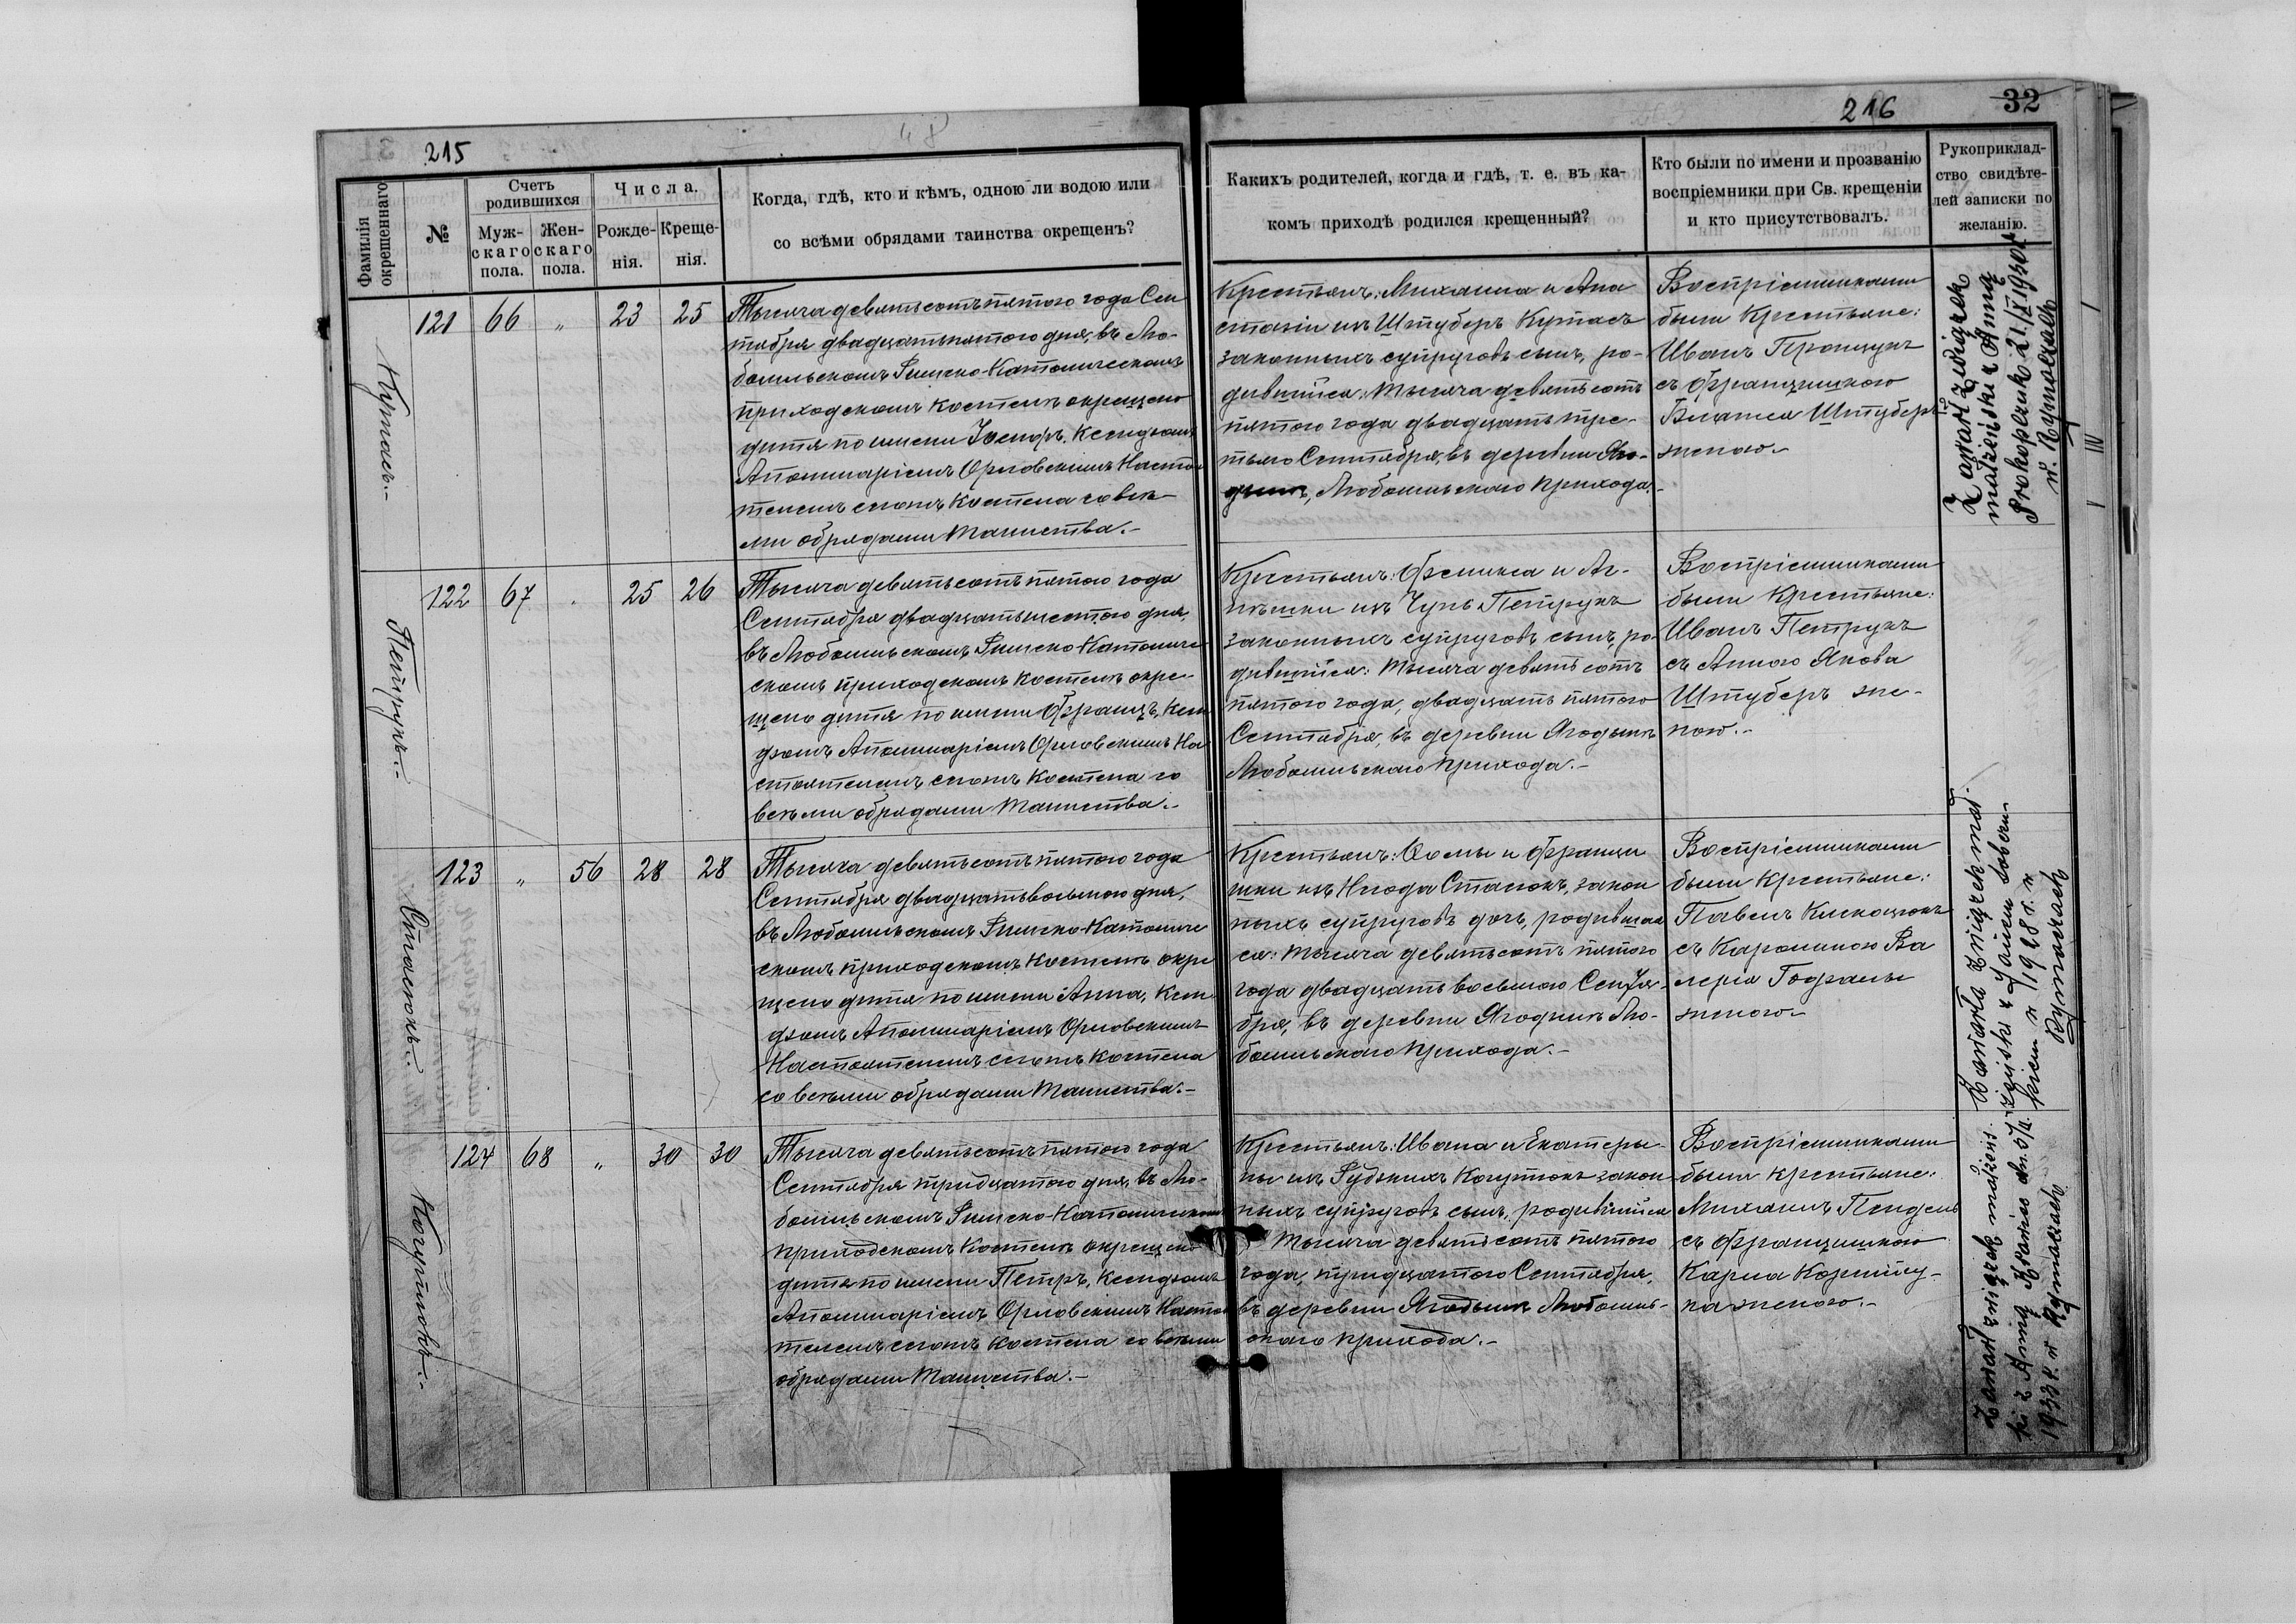 215
Фамилія окрещеннаго
№
Счетъ родившихся
Муж-скаго пола.
Жен-скаго пола.
Числа.
Рожде-нія.
Креще-нія.
Когда, гдѣ, кто и кѣмъ, одною ли водою или
со всѣми обрядами таинства окрещенъ?
216
32
Какихъ родителей, когда и гдѣ, т. е. въ ка-
комъ приходѣ родился крещенный?
Кто были по имени и прозванію
воспріемники при Св. крещеніи
и кто присутствовалъ.
Рукоприклад-
ство свидѣте-
лей записки по
желанію.
Кутасъ.-
121 66 „ 23 25
Тысяча девятьсотъ пятого года Сен
тября двадцатьпятого дня, въ Лю-
бомльскомъ Римско-Католическомъ
приходскомъ костелѣ окрещено
дитя по имени Іосифъ, Ксендзомъ
Аполинаріемъ Орловскимъ Настоя
телемъ сего-тъ Костела со всѣ-
ми обрядами Таинства.-
Крестьянъ: Михаила и Ана
стазіи изъ Штуберъ Кутасъ
законныхъ супруговъ сынъ, ро-
дившійся: тысяча девятьсотъ
пятого года двадцать тре-
тьяго Сентября, въ деревни Яго-
дынѣ, Любомльскаго прихода.-
Воспріемниками
были Крестьяне:
Иванъ Процукъ
съ Францишкою
Блажея Штуберъ
женою.-
Zawarł związek
małżeński z Anną
Prokopczuk 21/IX 1930 r.
w. Rymaczach
Петрукъ.-
122 67 . 25 26
Тысяча девятьсотъ пятого года
Сентября двадцатьшестого дня,
въ Любомльскомъ Римско-Католиче
скомъ приходскомъ Костелѣ окре-
щено дитя по имени Францъ, Ксен
дзомъ Аполинаріемъ Орловскимъ На
стоятелемъ сего-тъ Костела со
всѣми обрядами Таинства.-
Крестьянъ: Феликса и Аг-
нѣшки изъ Чунь Петрукъ
законныхъ супруговъ сынъ, ро
дившійся: тысяча девятьсотъ
пятого года, двадцать пятого
Сентября, въ деревни Ягодынѣ
Любомльскаго прихода.-
Воспріемниками
были Крестьяне:
Иванъ Петрукъ
съ Анною Якова
Штуберъ же-
ною.-
Стасюкъ.-
123 „ 56 28 28
Тысяча девятьсотъ пятого года
Сентября двадцатьвосьмого дня,
въ Любомльскомъ Римско-Католиче
скомъ приходскомъ Костелѣ окре
щено дитя по имени Анна, Ксен
дзомъ Аполинаріемъ Орловскимъ
Настоятелемъ сего-тъ Костела
со всѣми обрядами Таинства.-
Крестьянъ: Ѳомы и Францы
шки изъ Нюода Стасюкъ, закон
ныхъ супруговъ дочь, родившая
ся: тысяча девятьсотъ пятого
года двадцать восьмого Сентя-
бря, въ деревни Ягодынѣ Лю-
бомльскаго прихода.-
Воспріемниками
были Крестьяне:
Павелъ
съ Каролиною Ва
лерія
женою.-
Zawarła związek mał.
żeński z Janem
kiem w 1928 r. w
Rymaczach
Когутюкъ.-
124 68 „ 30 30
Тысяча девятьсотъ пятого года
Сентября тридцатого дня, въ Лю-
бомльскомъ Римско-Католическомъ
приходскомъ Костелѣ окрещено
дитя по имени Петръ, Ксендзомъ
Аполинаріемъ Орловскимъ Настоя
телемъ сего-тъ Костела со всѣми
обрядами Таинства.-
Крестьянъ: Ивана и Екатеры-
ны изъ Рудзкихъ Когутюкъ закон
ныхъ супруговъ сынъ, родившійся
тысяча девятьсотъ пятого
года, тридцатого Сентября,
въ деревни Ягодынѣ Любомль-
скаго прихода.-
Воспріемниками
были крестьяне:
Михаилъ
съ Францишкою
Карла
на женою.-
Zawarł związek małżeńs-
ki z Anną
1933 r. w Rymaczach